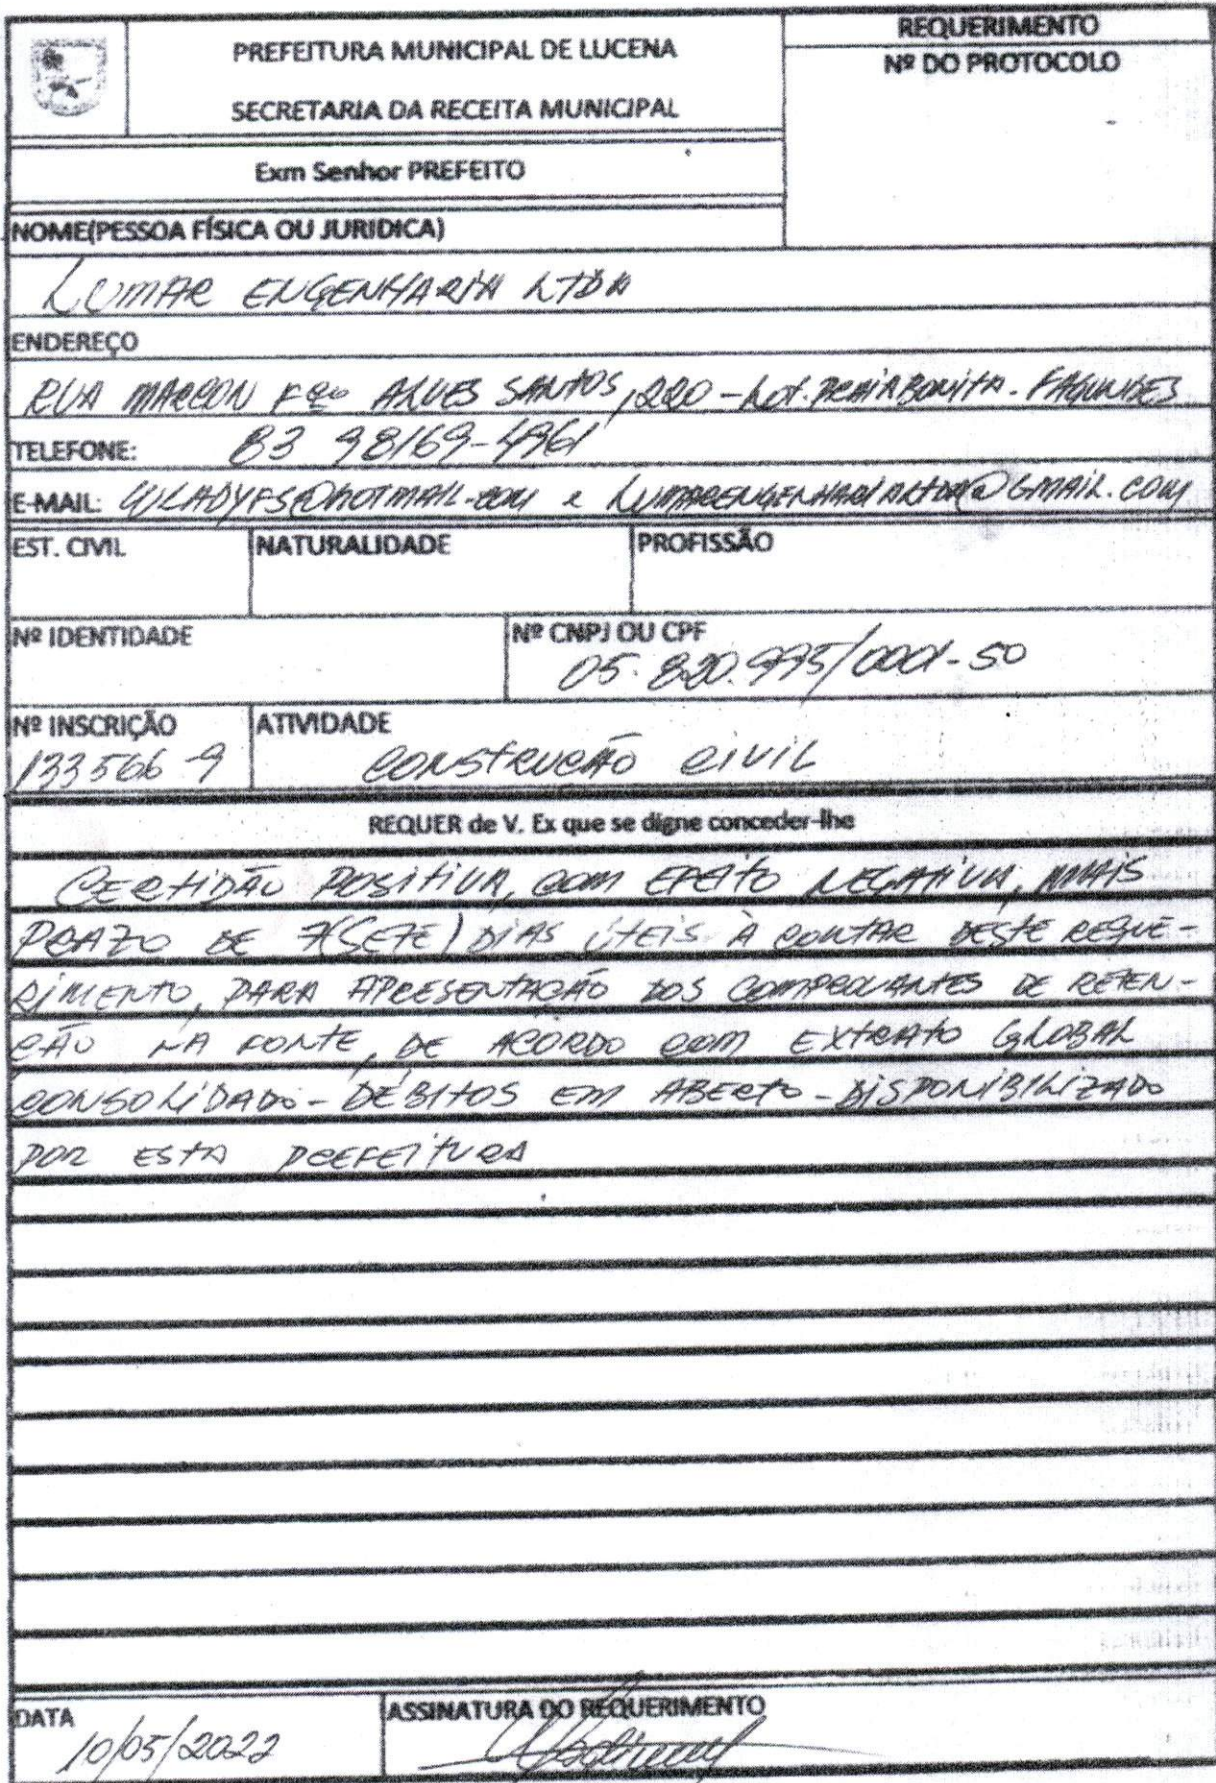 PREFEITURA MUNICIPAL DE LUCENA
SECRETARIA DA RECEITA MUNICIPAL
REQUERIMENTO
Nº DO PROTOCOLO
Exm Senhor PREFEITO
NOME(PESSOA FÍSICA OU JURIDICA)
LUMAR ENGENHARIA LTDA
ENDEREÇO
RUA MARCON Fco ALVES SANTOS, 220 - Lot. PRAIA BONITA - FAGUNDES
TELEFONE: 83 98169-4961
E-MAIL: WLADYFS@HOTMAIL.COM e LUMARENGENHARIALTDA@GMAIL.COM
EST. CIVIL NATURALIDADE PROFISSÃO
Nº IDENTIDADE Nº CNPJ OU CPF
05.820.995/0001-50
Nº INSCRIÇÃO ATIVIDADE
133566-9 CONSTRUCÃO CIVIL
REQUER de V. Ex que se digne conceder-lhe
CERTIDÃO POSITIVA, COM EFEITO NEGATIVA, MAIS
PRAZO DE 7(SETE) DIAS ÚTEIS À CONTAR DESTE REQUE-
RIMENTO, PARA APRESENTAÇÃO DOS COMPROVANTES DE RETEN-
ÇÃO NA FONTE, DE ACORDO COM EXTRATO GLOBAL
CONSOLIDADO - DÉBITOS EM ABERTO - DISPONIBILIZADO
POR ESTA PREFEITURA
DATA ASSINATURA DO REQUERIMENTO
10/05/2022